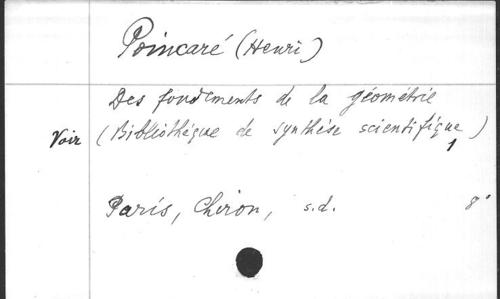 Poincaré (Henri)
Des fondements de la géométrie
Voir (Bibliothéque de synthése scientifique )
1
Paris, Chiron, s.d. 8°